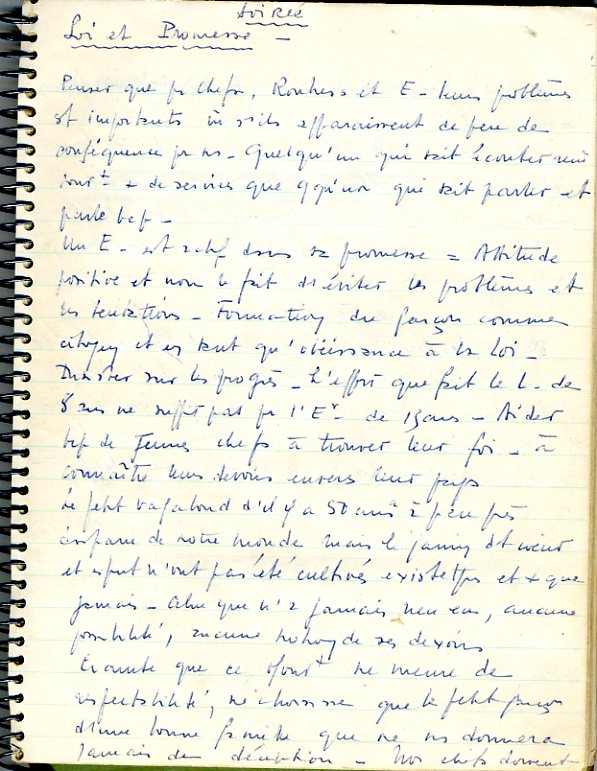 Soirée
Loi et Promesse -
Penser que pr chefs, Routiers et E - leurs problèmes
st importants m s'ils apparaissent de peu de
conséquence pr ns - Quelqu'un qui sait écouter rend
+ de services que qqu'un qui sait parler - et
parle bcp -
Un E - est actif dans sa promesse = Attitude
positive et non le fait d'éviter les problèmes et
les tentations - Formation du garçon comme
citoyen et en tant qu'obéissance à la Loi -
Insister sur les progrès - L'effort que fait le L - de
8 ans ne suffit pas pr l'Er - de 15 ans - Aider
bcp de jeunes chefs à trouver leur foi - à
connaître leurs devoirs envers leur pays
Le petit vagabond d'il y a 50 ans a à peu près
disparu de notre monde mais le garçon dt coeur
et esprit n'ont pas été cultivés existe tjs et + que
jamais - Celui qui n'a jamais rien eu, aucune
possibilité, aucune notion de ses devoirs
Crainte que ce mvt ne meure de
respectabilité, ne choisisse que le petit garçon
d'une bonne famille qui ne ns donnera
jamais de déception - Nos chefs doivent